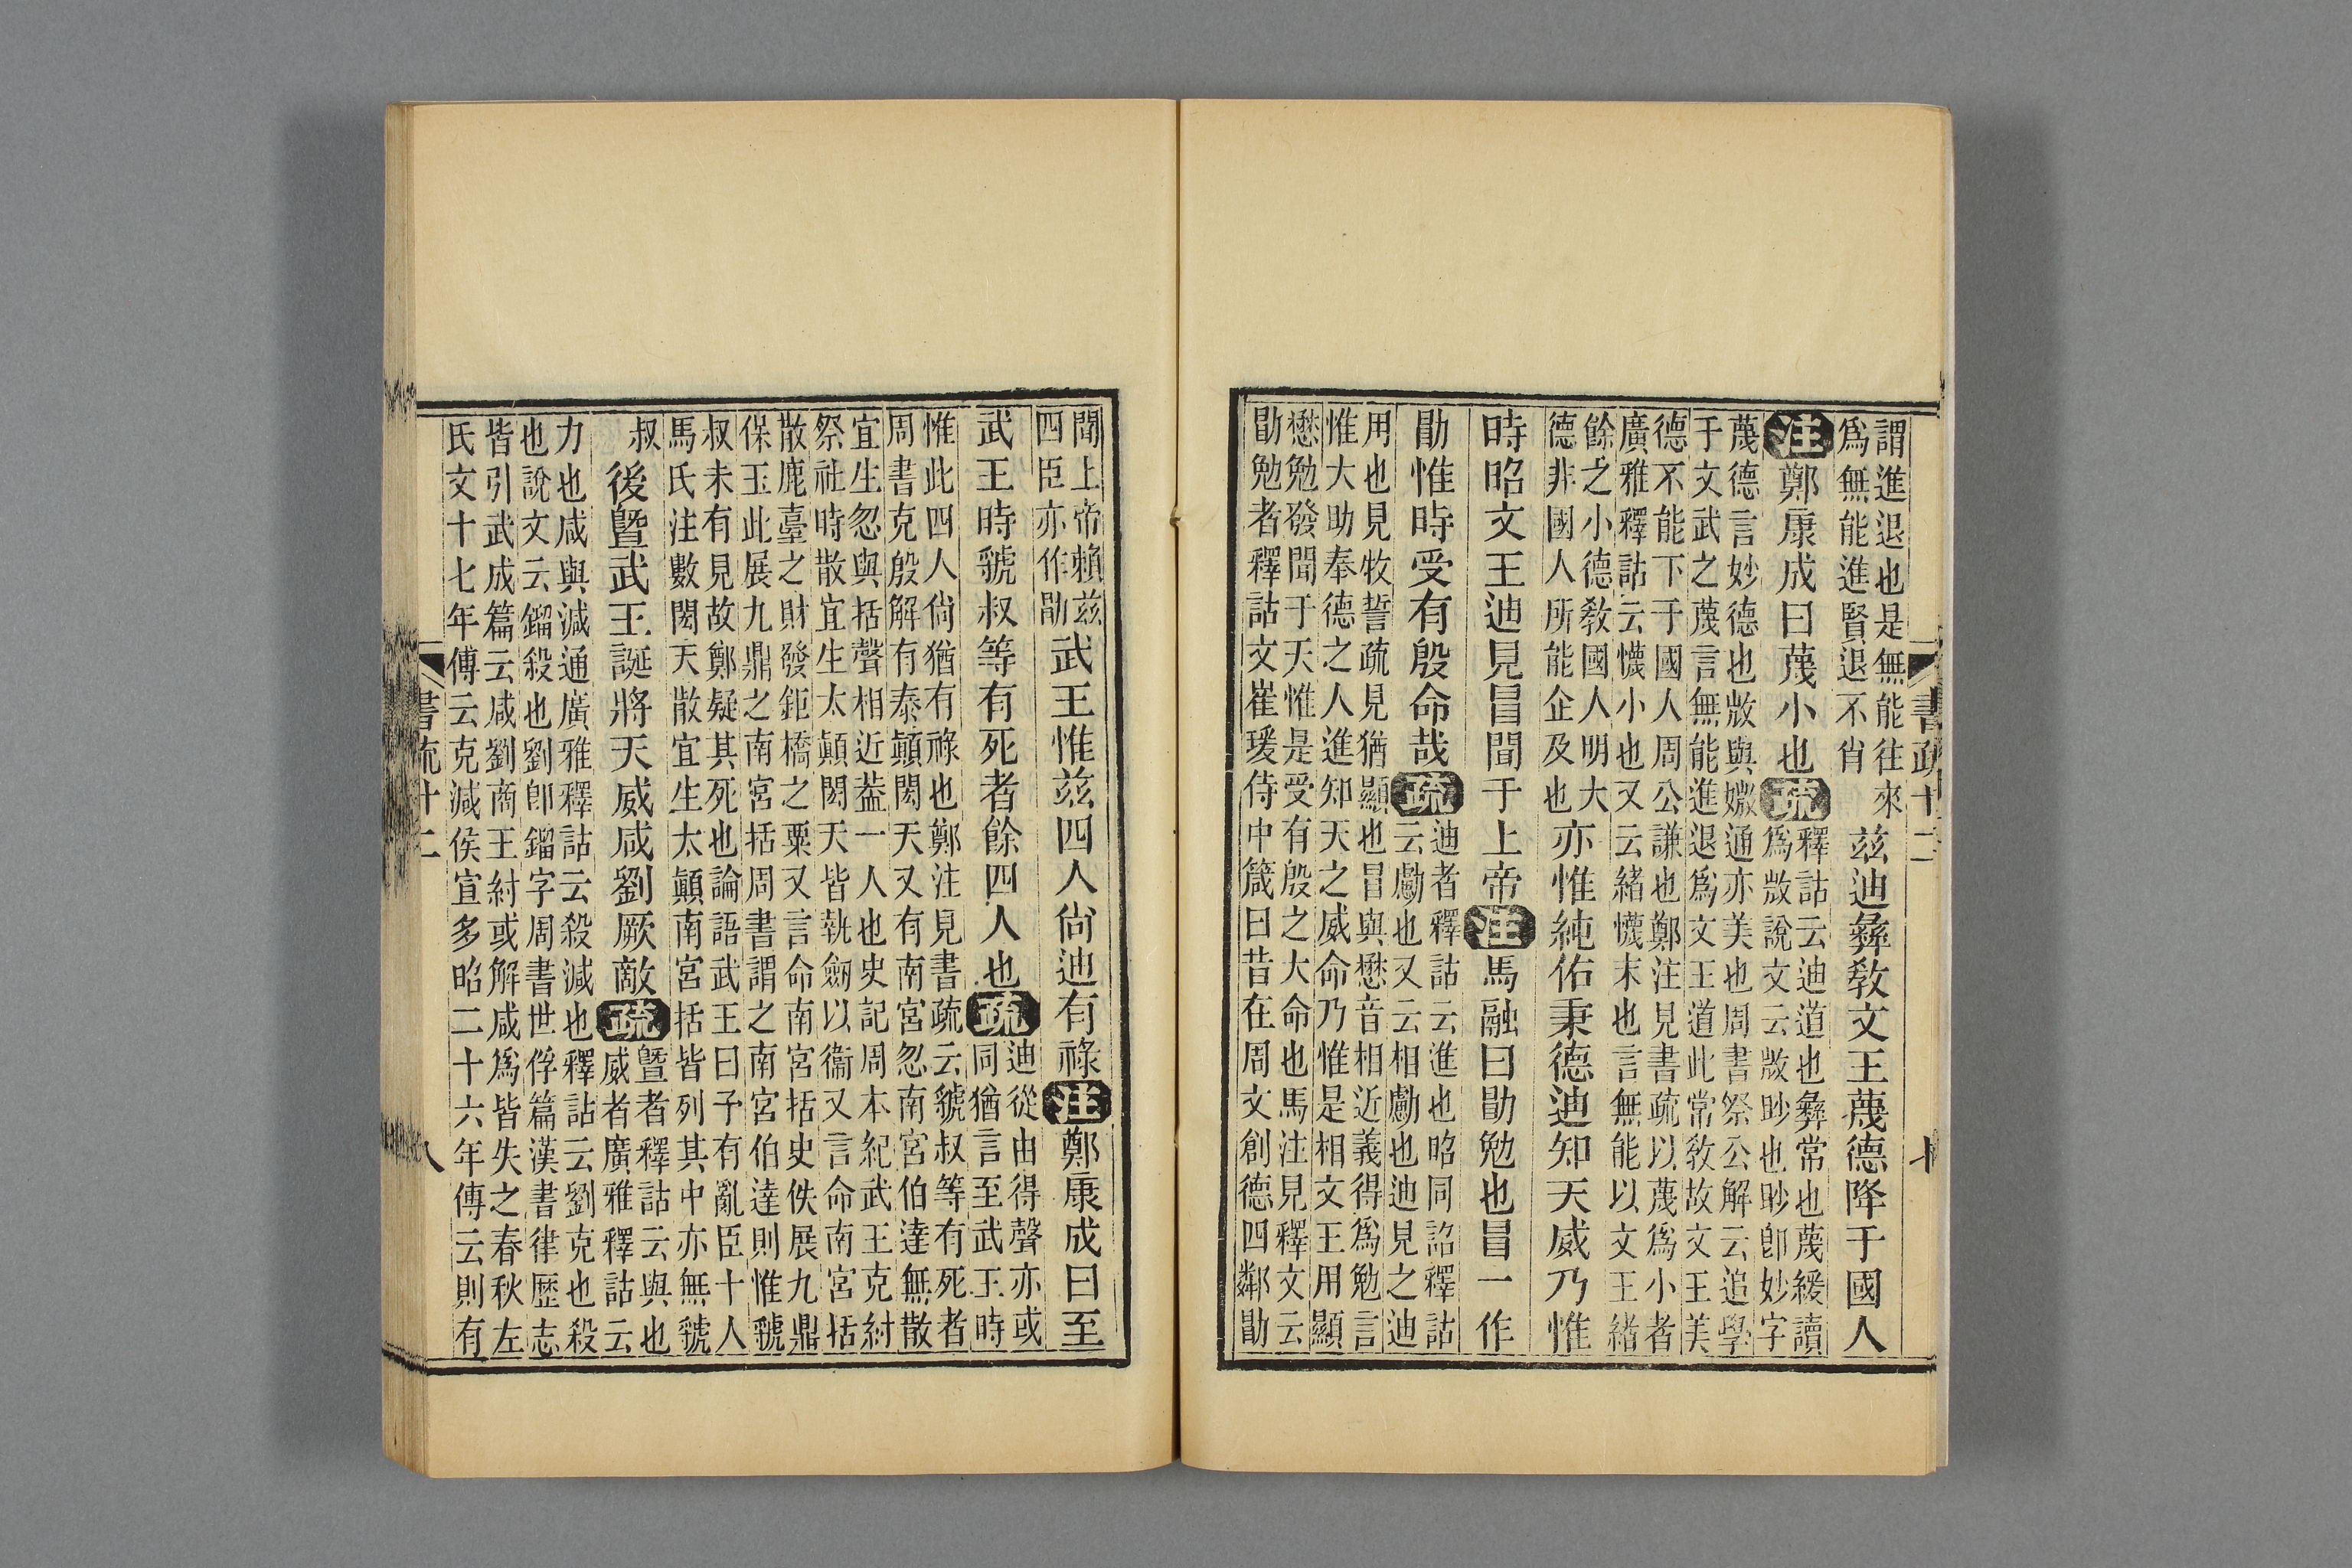 謂進退也是無能往來
爲無能進賢退不肖
茲迪彝敎文王蔑德降于國人
注鄭康成曰蔑小也疏
釋詁云迪道也彝常也蔑緩讀
爲㪚說文云㪚眇也眇卽妙字
蔑德言妙德也㪚與媺通亦美也周書祭公解云追學
于文武之蔑言無能進退爲文王道此常敎故文王美
德不能下于國人周公謙也鄭注見書疏以蔑爲小者
廣雅釋詁云懱小也又云緒懱末也言無能以文王緒
餘之小德敎國人明大
德非國人所能企及也
亦惟純佑秉德迪知天威乃惟
時昭文王迪見冒聞于上帝注馬融曰勖勉也冒一作
勖惟時受有殷命哉疏
迪者釋詁云進也昭同詔釋詁
云勴也又云相勴也迪見之迪
用也見牧誓疏見猶顯也冒與懋音相近義得爲勉言
惟大助奉德之人進知天之威命乃惟是相文王用顯
懋勉發聞于天惟是受有殷之大命也馬注見釋文云
勖勉者釋詁文崔瑗侍中箴曰昔在周文創德四鄰勖
聞上帝賴茲
四臣亦作勖
武王惟茲四人尙迪有祿注鄭康成曰至
武王時虢叔等有死者餘四人也疏
迪從由得聲亦或
同猶言至武王時
惟此四人尙猶有祿也鄭注見書疏云虢叔等有死者
周書克殷解有泰顚閎夭又有南宮忽南宮伯達無散
宜生忽與括聲相近葢一人也史記周本紀武王克紂
祭社時散宜生太顚閎夭皆執劎以衞又言命南宮括
散鹿臺之財發鉅橋之粟又言命南宮括史佚展九鼎
保玉此展九鼎之南宮括周書謂之南宮伯達則惟虢
叔未有見故鄭疑其死也論語武王曰予有亂臣十人
馬氏注數閎夭散宜生太顚南宮括皆列其中亦無虢
叔
後曁武王誕將天威咸劉厥敵疏
曁者釋詁云與也
威者廣雅釋詁云
力也咸與減通廣雅釋詁云殺減也釋詁云劉克也殺
也說文云鎦殺也劉卽鎦字周書世俘篇漢書律歷志
皆引武成篇云咸劉商王紂或解咸爲皆失之春秋左
氏文十七年傳云克減侯宣多昭二十六年傳云則有
書疏十二
八